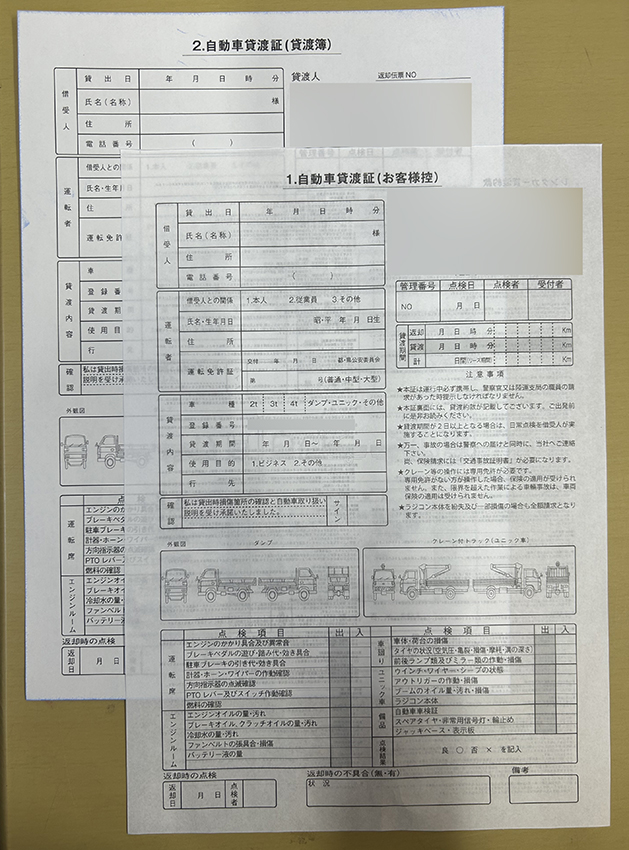 2.自動車貸渡証(貸渡簿)
貸出日 年 月 日 時 分
借受人
氏名(名称) 様
住所
電話番号 ( )
貸渡人
返却伝票NO
借受人との
運転者
氏名・生年
住
運転免許
車
貸渡内容
登録番
貸渡期
使用目
行
確認
私は貸出時損
説明を受け承
外観図
点
運転席
エンジンのかか
ブレーキペダルの
駐車ブレーキの
計器・ホーン・ワ
方向指示器の
PTO レバー及び
燃料の確認
エンジンルーム
エンジンオイ
ブレーキオイ
冷却水の量・
ファンベルト
バッテリー液
返却時の点検
返却日 月 日
1.自動車貸渡証(お客様控)
借受人
貸出日 年 月 日 時 分
氏名(名称) 様
住所
電話番号 ( )
運転者
借受人との関係 1.本人 2.従業員 3.その他
氏名・生年月日 昭・平 年 月 日生
住所
運転免許証
交付 年 月 日 都・県公安委員会
第 号(普通・中型・大型)
貸渡内容
車種 2t 3t 4t ダンプ・ユニック・その他
登録番号
貸渡期間 月 日〜 年 月 日
使用目的 1.ビジネス 2.その他
行先
確認
私は貸出時損傷箇所の確認と自動車取り扱い
説明を受け承諾いたしました。
サイン
管理番号 点検日 点検者 受付者
NO 月 日
貸渡期間
返却 月 日 時 分 Km
貸渡 月 日 時 分 Km
計 日間(リース期間) Km
注意事項
★本証は運行中必ず携帯し、警察官又は陸運支局の職員の請
求があった時提示しなければなりません。
★本証裏面には、貸渡約款が記載してございます。ご出発前
に是非お読みください。
★貸渡期間が2日以上となる場合は、日常点検を借受人が実
施することになります。
★万一、事故の場合は警察への届けと同時に、当社へご連絡
下さい。
従、保険請求には「交通事故証明書」が必要になります。
★クレーン等の操作には専用免許が必要です。
専用免許がない方が操作した場合、保険の適用が受けられ
ません。また、限界を超えた作業による車輛事故は、車両
保険の適用は受けられません。
★ラジコン本体を紛失及び一部損傷の場合も全額請求となり
ます。
外観図 ダンプ
クレーン付トラック(ユニック車)
点検項目 出 入
運転席
エンジンのかかり具合及び異常音
ブレーキペダルの遊び・踏み代・効き具合
駐車ブレーキの引き代・効き具合
計器・ホーン・ワイパーの作動確認
方向指示器の点滅確認
PTO レバー及びスイッチ作動確認
燃料の確認
エンジンルーム
エンジンオイルの量・汚れ
ブレーキオイル、クラッチオイルの量・汚れ
冷却水の量・汚れ
ファンベルトの張具合・損傷
バッテリー液の量
点検項目 出 入
車回り
車体・荷台の損傷
タイヤの状況(空気圧・亀裂・損傷・摩耗・溝の深さ)
前後ランプ類及びミラー類の作動・損傷
ユニック車
ウインチ・ワイヤー・シーブの状態
アウトリガーの作動・損傷
ブームのオイル量・汚れ・損傷
ラジコン本体
備品
自動車車検証
スペアタイヤ・非常用信号灯・輪止め
ジャッキベース・表示板
点検結果
良 ○ 否 × を記入
返却時の点検
返却日 月 日 点検者
返却時の不具合(無・有)
状況
備考